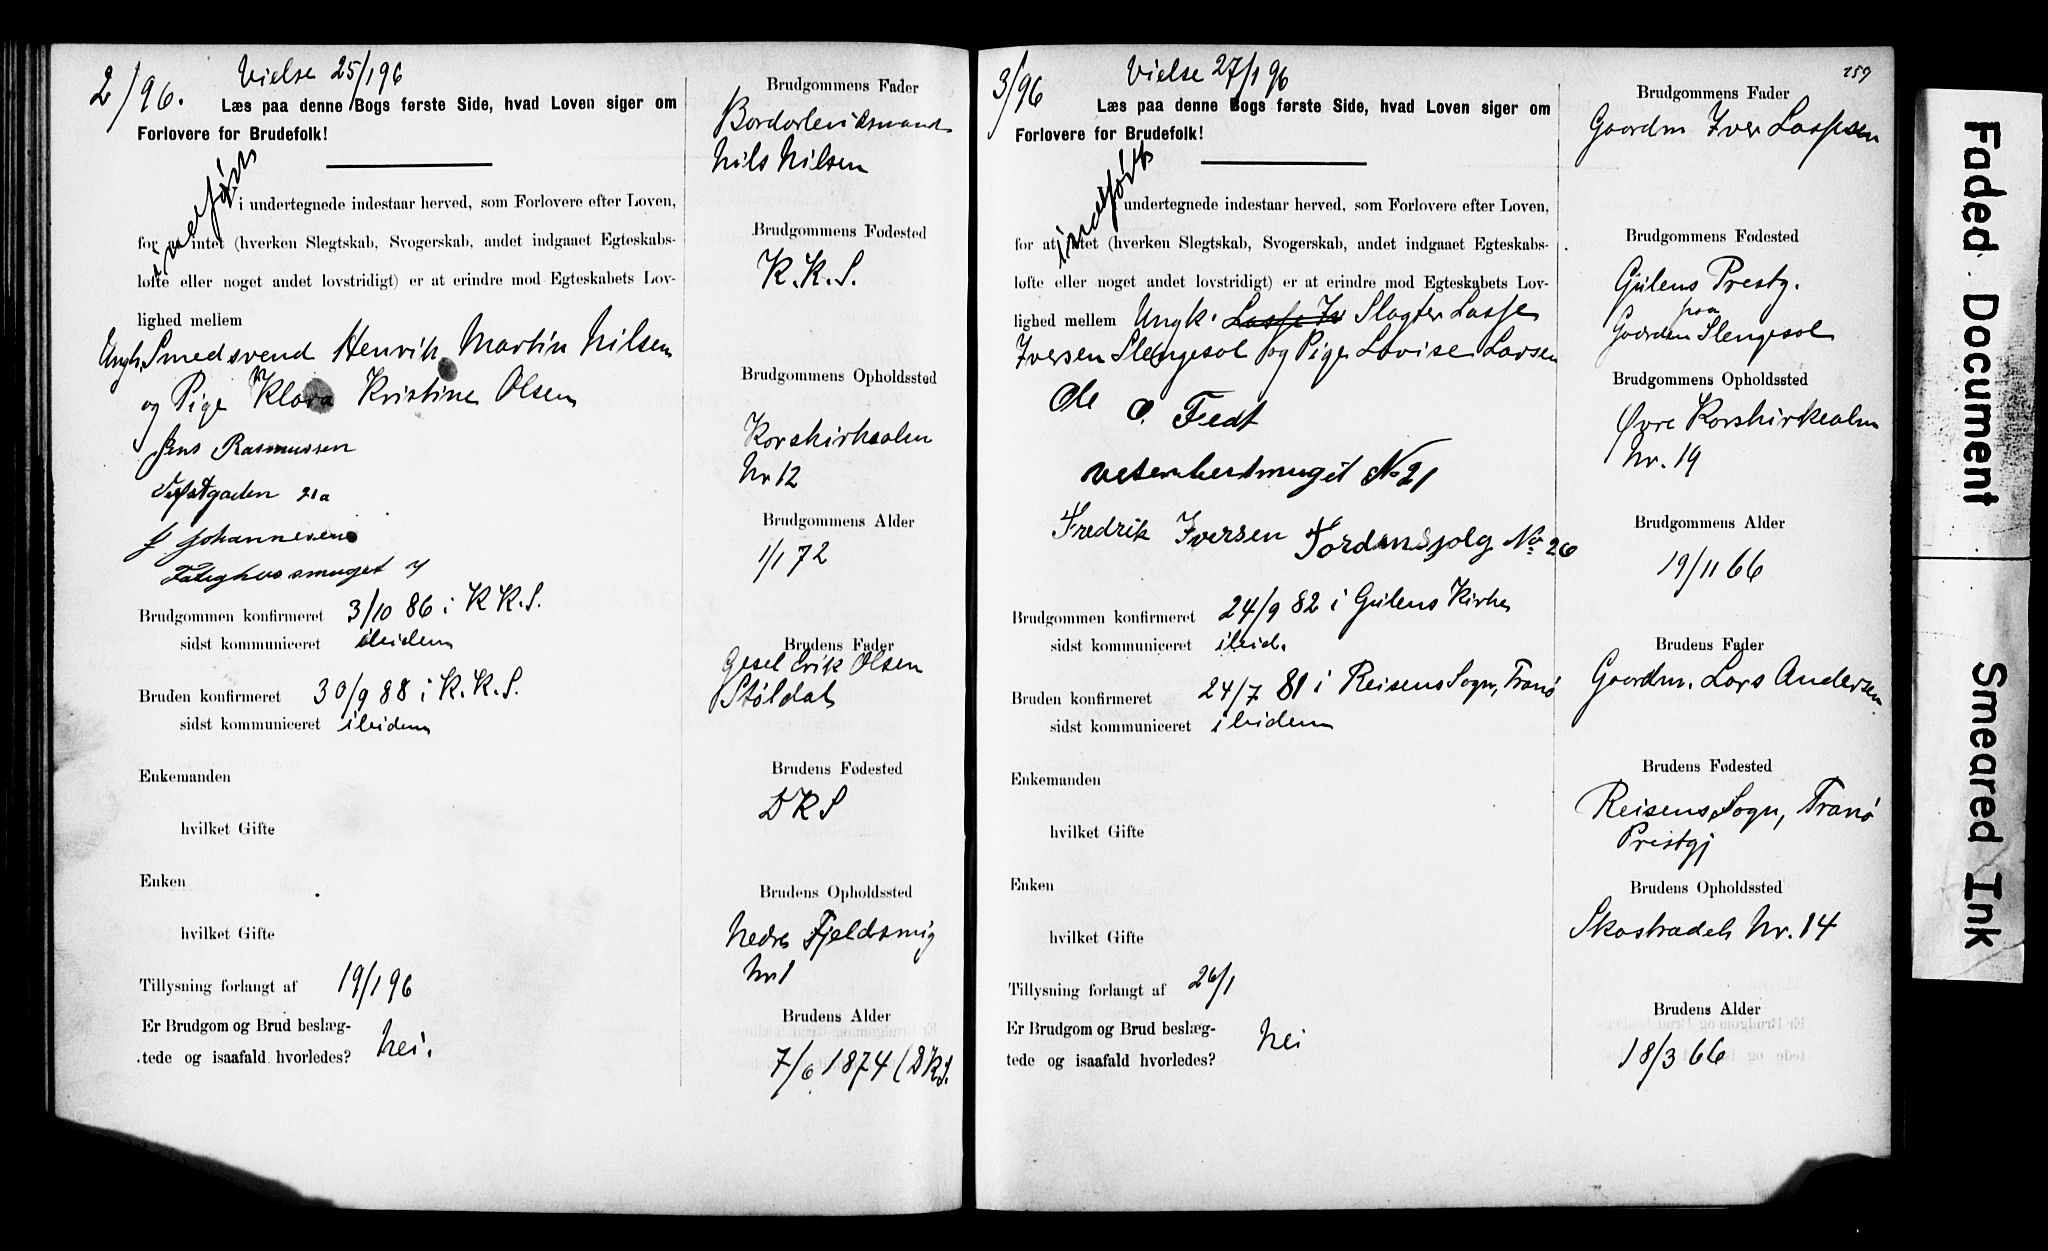 2/96.
Vielse 25/1 96
Læs paa denne Bogs første Side, hvad Loven siger om
Forlovere for Brudefolk!
indført
Vi undertegnede indestaar herved, som Forlovere efter Loven,
for at intet (hverken Slegtskab, Svogerskab, andet indgaaet Egteskabs-
løfte eller noget andet lovstridigt) er at erindre mod Egteskabets Lov-
lighed mellem
Ungk. Smedsvend Henrik Martin Nilsen
og Pige Klara Kristine Olsen
Jens Rasmussen
21a
J Johannesen
Fatighussmuget 7
Brudgommen konfirmeret 3/10 86 i K.K.S.
sidst kommuniceret ibidem
Bruden konfirmeret 30/9 88 i K.K.S.
sidst kommuniceret ibidem
Enkemanden
hvilket Gifte
Enken
hvilket Gifte
Tillysning forlangt af 19/1 96
Er Brudgom og Brud beslæg-
tede og isaafald hvorledes? Nei.
Brudgommens Fader
Nils Nilsen
Brudgommens Fødested
K.K.S.
Brudgommens Opholdssted
Korskirkealm
Nr 12
Brudgommens Alder
1/1 72
Brudens Fader
Erik Olsen
Brudens Fødested
DKS
Brudens Opholdssted
Nedre Fjeldsmug
Nr 1
Brudens Alder
7/6 1874 (DKS.
3/96
Vielse 27/1 96
159
Læs paa denne Bogs første Side, hvad Loven siger om
Forlovere for Brudefolk!
indført
undertegnede indestaar herved, som Forlovere efter Loven,
for at intet (hverken Slegtskab, Svogerskab, andet indgaaet Egteskabs-
løfte eller noget andet lovstridigt) er at erindre mod Egteskabets Lov-
lighed mellem Ungk. Lasse Iv Slagter Lasse
Iversen Slengesol og Pige Lovise Larsen
Ole O. Fedt
No 21
Fredrik Iversen No 26
Brudgommen konfirmeret 24/9 82 i Gulens Kirke
sidst kommuniceret ibid.
Bruden konfirmeret 24/7 81 i Reisens Sogn, Tranø
sidst kommuniceret ibidem
Enkemanden
hvilket Gifte
Enken
hvilket Gifte
Tillysning forlangt af 26/1
Er Brudgom og Brud beslæg-
tede og isaafald hvorledes? Nei
Brudgommens Fader
Gaardm Iver Lassesen
Brudgommens Fødested
Gulens Prestg.
paa
Gaarden Slengesol
Brudgommens Opholdssted
Øvre Korskirkealm
Nr. 19
Brudgommens Alder
19/11 66
Brudens Fader
Gaardm. Lars Andersen
Brudens Fødested
Reisens Sogn, Tranø
Prestgj
Brudens Opholdssted
Skostrædet Nr. 14
Brudens Alder
18/3 66
Faded Document
Smeared Ink